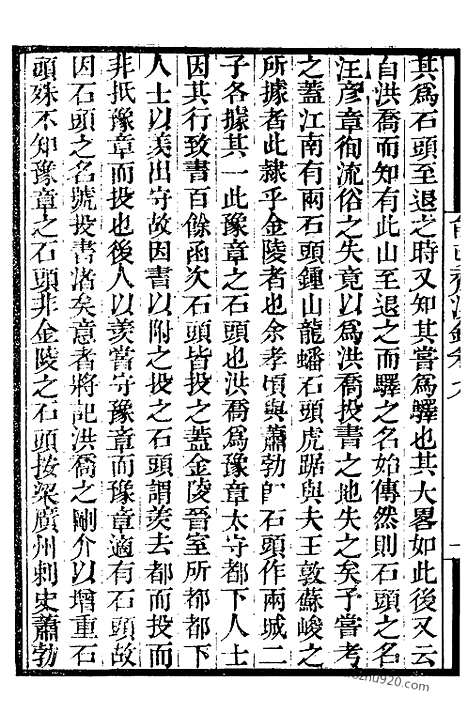 其爲石頭至退之時又知其嘗爲驛也其大畧如此後又云
自洪喬而知有此山至退之而驛之名始傳然則石頭之名
汪彦章徇流俗之失竟以爲洪喬投書之地失之矣予嘗考
之蓋江南有兩石頭鍾山龍蟠石頭虎踞與夫王敦蘇峻之
所據者此隸乎金陵者也余孝頃與蕭勃卽石頭作兩城二
子各據其一此豫章之石頭也洪喬爲豫章太守都下人士
因其行致書百餘函次石頭皆投之蓋金陵晉室所都都下
人士以羨出守故因書以附之投之石頭謂羨去都而投而
非抵豫章而投也後人以羨嘗守豫章而豫章適有石頭故
因石頭之名號投書渚矣意者將記洪喬之剛介以增重石
頭殊不知豫章之石頭非金陵之石頭按梁廣州刺史蕭勃